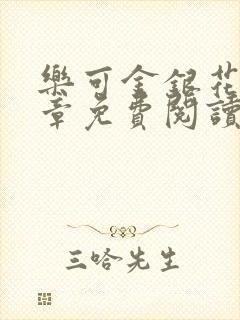 樂可金銀花
章免費閱讀
三哈先生